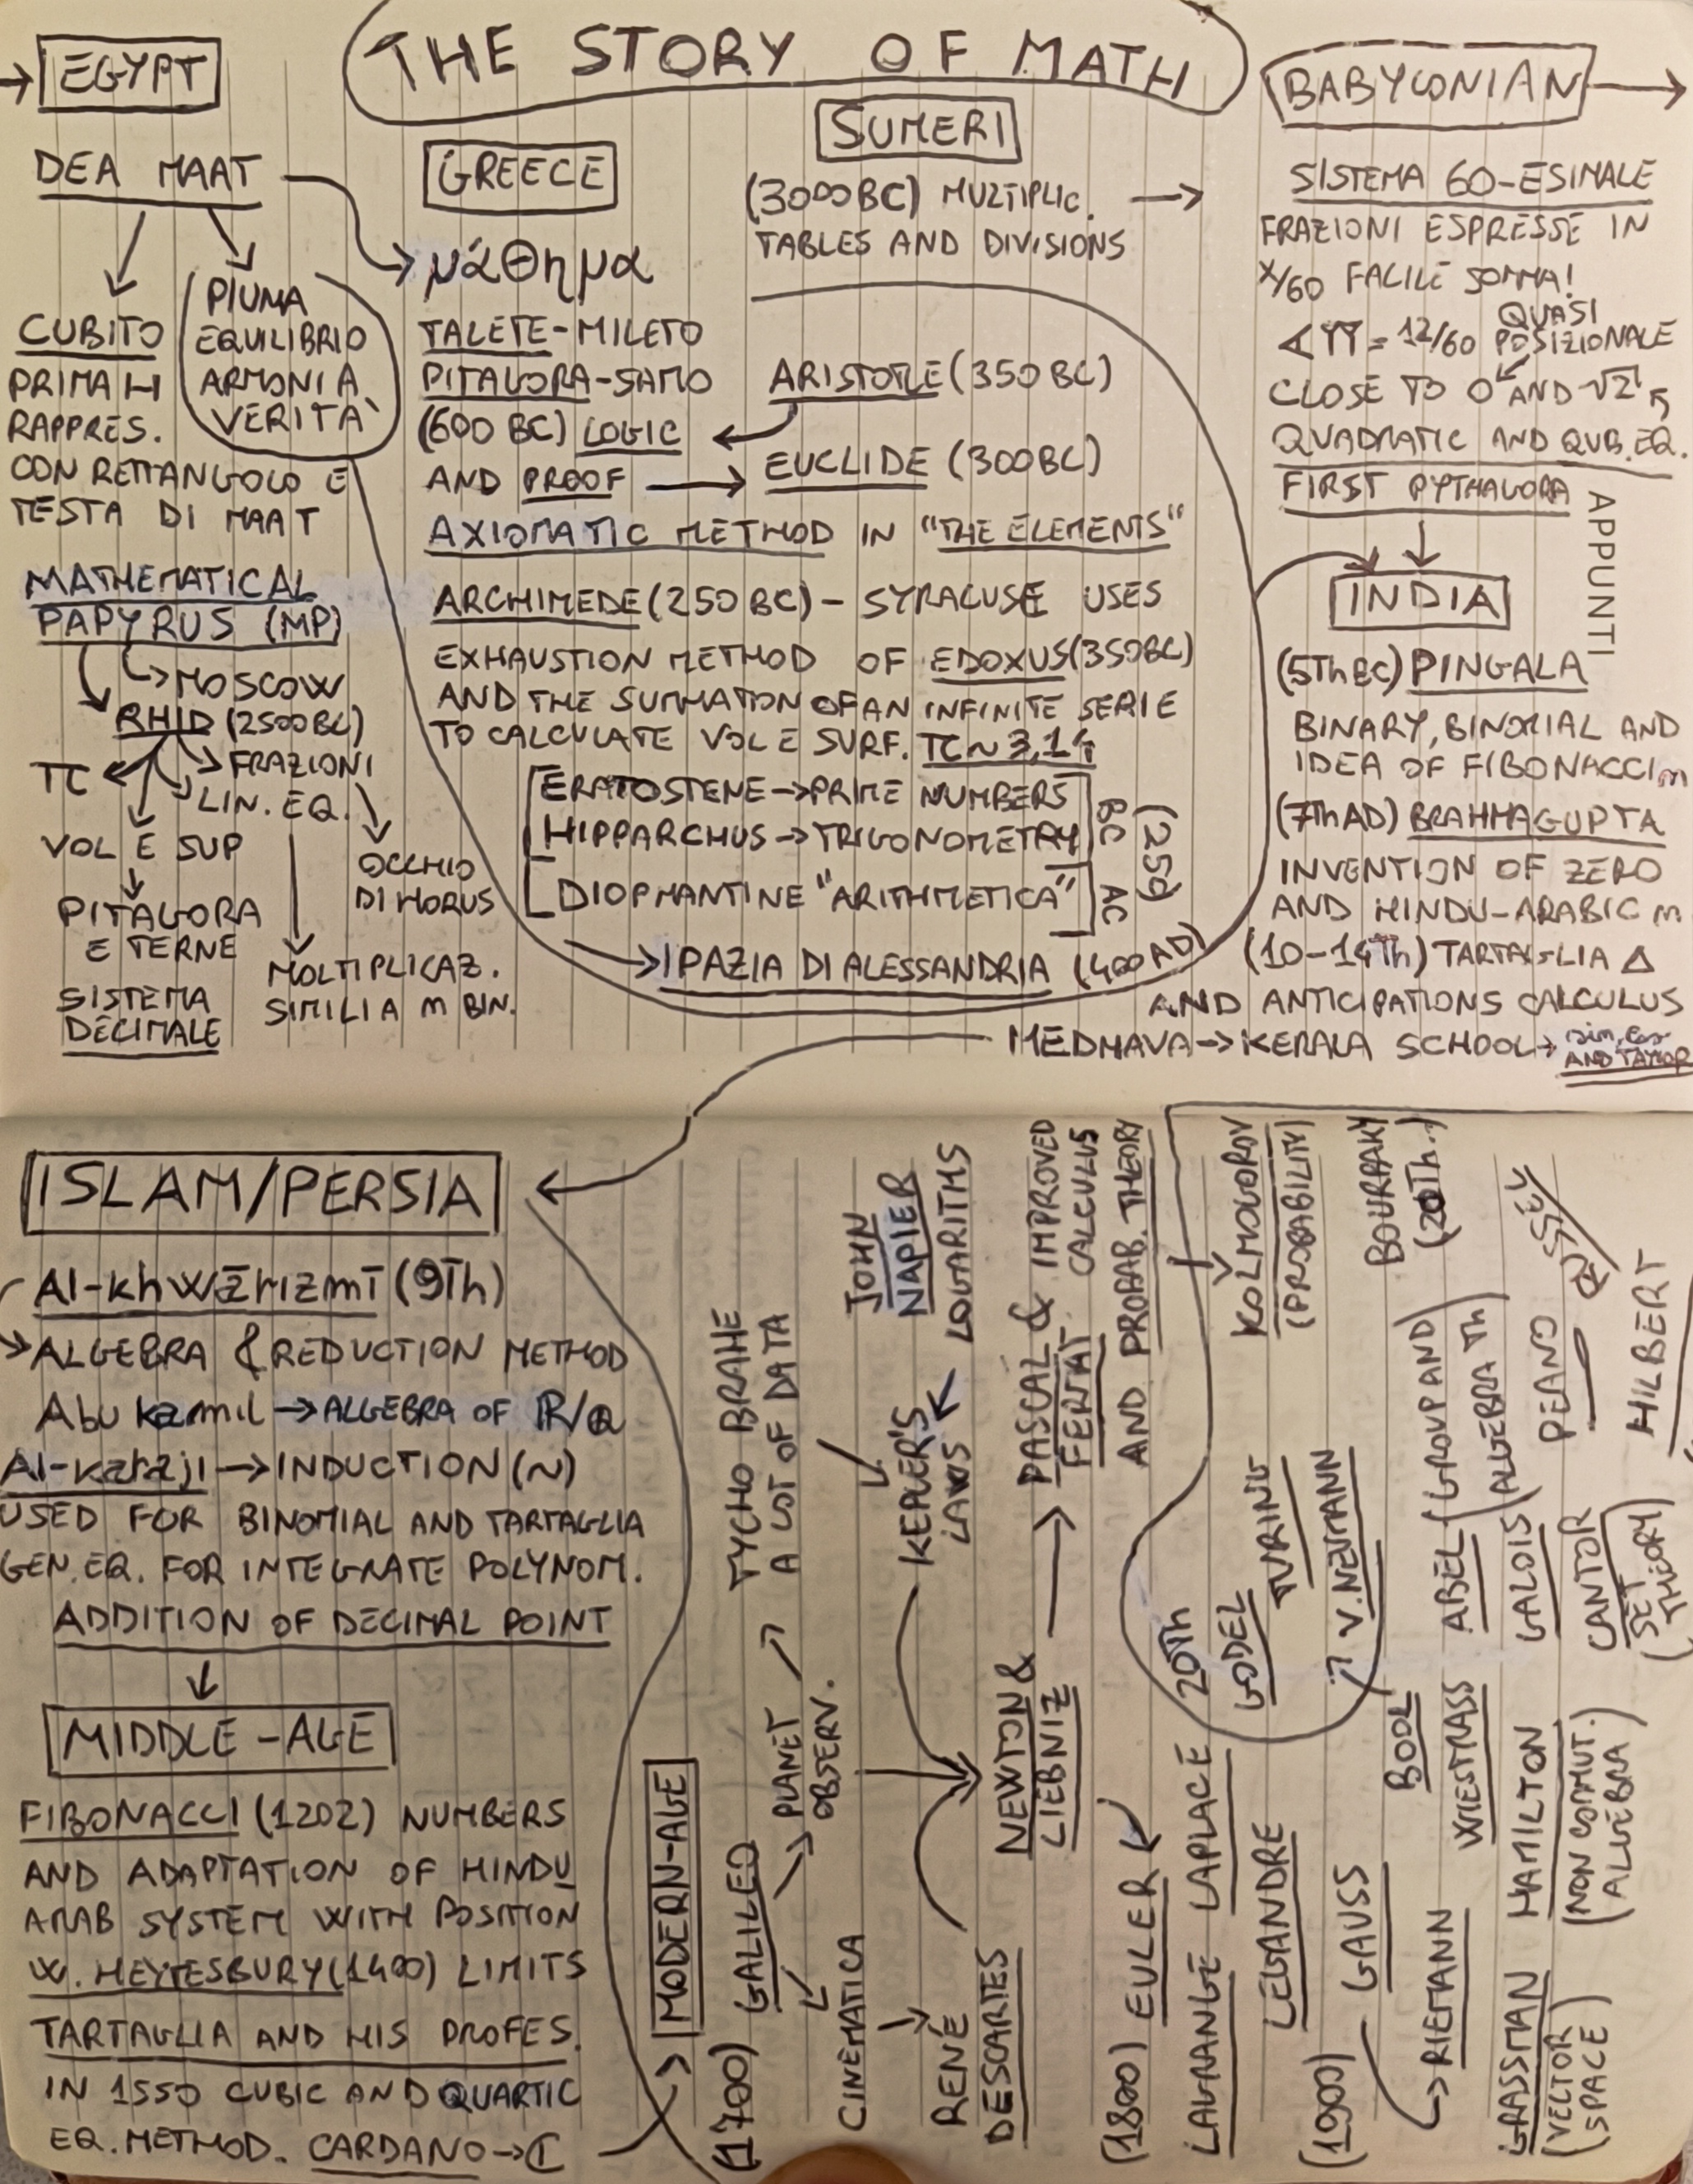 THE STORY OF MATH
→ EGYPT
DEA MAAT
CUBITO
PRIMA H
RAPPRES.
CON RETTANGOLO E
TESTA DI MAAT
PIUMA
EQUILIBRIO
ARMONIA
VERITA'
MATHEMATICAL
PAPYRUS (MP)
MOSCOW
RHID (2500BC)
π
FRAZIONI
LIN. EQ.
VOL E SUP
OCCHIO
DI HORUS
PITAGORA
E TERNE
SISTEMA
DECIMALE
MOLTIPLICAZ.
SIMILI A m BIN.
GREECE
μάθημα
TALETE-MILETO
PITAGORA-SAMO
(600 BC) LOGIC
AND PROOF →
ARISTOTLE (350 BC)
EUCLIDE (300BC)
AXIOMATIC METHOD IN "THE ELEMENTS"
ARCHIMEDE (250 BC) - SYRACUSE USES
EXHAUSTION METHOD OF EDOXUS (350BC)
AND THE SUMMATION OF AN INFINITE SERIE
TO CALCULATE VOL E SURF. π ~ 3,14
ERATOSTENE → PRIME NUMBERS
HIPPARCHUS → TRIGONOMETRY
BC
DIOPHANTINE "ARITHMETICA"
AC
(250)
→ IPAZIA DI ALESSANDRIA (400 AD)
SUMERI
(3000BC) MULTIPLIC. →
TABLES AND DIVISIONS
BABYLONIAN →
SISTEMA 60-ESIMALE
FRAZIONI ESPRESSE IN
x/60 FACILE SOMMA!
QUASI
POSIZIONALE
= 12/60
CLOSE TO 0 AND √2
QUADRATIC AND QUB. EQ.
FIRST PYTHAGORA
APPUNTI
INDIA
(5Th BC) PINGALA
BINARY, BINOMIAL AND
IDEA OF FIBONACCI m
(7Th AD) BRAHMAGUPTA
INVENTION OF ZERO
AND HINDU-ARABIC m
(10-14Th) TARTAGLIA Δ
AND ANTICIPATIONS CALCULUS
MEDHAVA → KERALA SCHOOL → sim, cos
AND TAYLOR
ISLAM/PERSIA
Al-khwārizmī (9Th)
→ ALGEBRA & REDUCTION METHOD
Abu kamil → ALGEBRA OF R/Q
Al-karaji → INDUCTION (~)
USED FOR BINOMIAL AND TARTAGLIA
GEN. EQ. FOR INTEGRATE POLYNOM.
ADDITION OF DECIMAL POINT
MIDDLE-AGE
FIBONACCI (1202) NUMBERS
AND ADAPTATION OF HINDU
ARAB SYSTEM WITH POSITION
W. HEYTESBURY (1400) LIMITS
TARTAGLIA AND HIS PROFES.
IN 1550 CUBIC AND QUARTIC
EQ. METHOD. CARDANO → C
MODERN-AGE
(1700) GALILEO
PLANET
OBSERV.
TYCHO BRAHE
A LOT OF DATA
CINEMATICA
JOHN
NAPIER
LOGARITHMS
KEPLER'S
LAWS
RENÉ
DESCARTES
NEWTON &
LIEBNIZ
PASCAL & IMPROVED
FERMAT CALCULUS
AND PROBAB. THEORY
(1800) EULER
LAGRANGE LAPLACE
LEGANDRE
(1900) GAUSS
RIEMANN
BOOL
WIESTRASS
GRASSMAN
(VECTOR
SPACE)
HAMILTON
(NON COMMUT.
ALGEBRA)
ABEL (GROUP AND
GALOIS ALGEBRA Th)
CANTOR
(SET
THEORY)
PEANO
HILBERT
20Th
GODEL
TURING
V. NEUMANN
KOLMOGOROV
(PROBABILITY)
BOURBAKY
(20Th.)